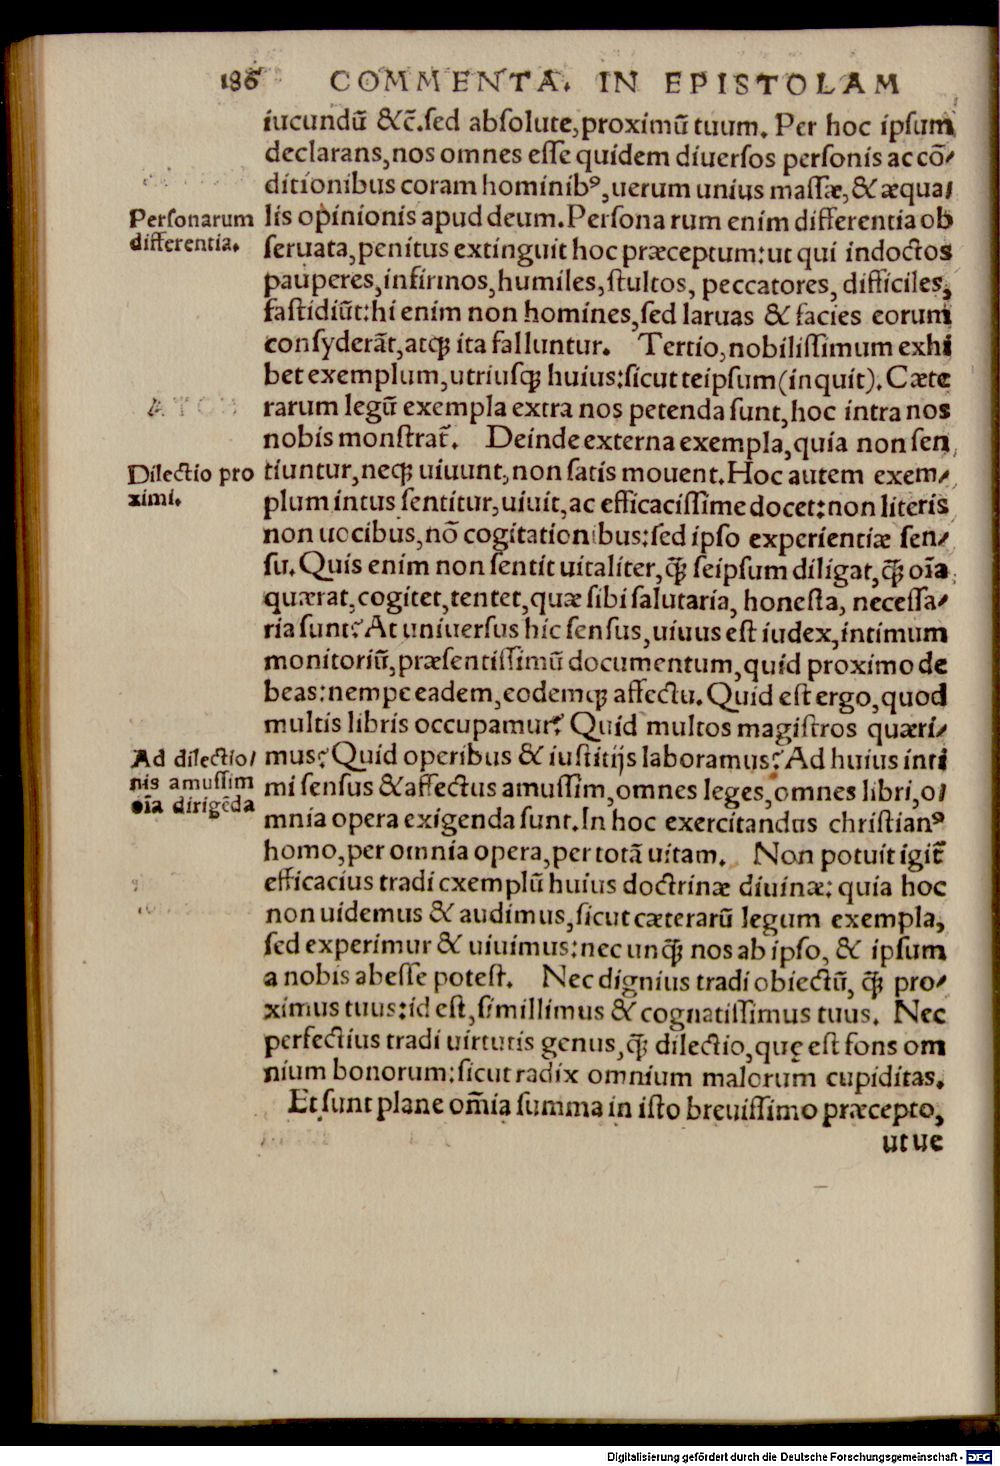 186 COMMENTA. IN EPISTOLAM
iucundũ &c̃.sed absolute,proximũ tuum. Per hoc ipsum
declarans,nos omnes esse quidem diuersos personis ac cõ⸗
ditionibus coram hominibꝰ,uerum unius massæ,& æqua⸗
Personarum
differentia.
lis opinionis apud deum.Persona rum enim differentia ob
seruata,penitus extinguit hoc præceptum:ut qui indoctos
pauperes,infirmos,humiles,stultos, peccatores, difficiles,
fastidiũt:hi enim non homines,sed laruas & facies eorum
consyderãt,atqꝫ ita falluntur. Tertio,nobilissimum exhi
bet exemplum,utriusqꝫ huius:sicut teipsum(inquit).Cæte
rarum legũ exempla extra nos petenda sunt,hoc intra nos
nobis monstrat̃. Deinde externa exempla,quia non sen
Dilectio pro
ximi.
tiuntur,neqꝫ uiuunt,non satis mouent.Hoc autem exem⸗
plum intus sentitur,uiuit,ac efficacissime docet:non literis
non uocibus,nõ cogitationibus:sed ipso experientiæ sen⸗
su.Quis enim non sentit uitaliter,q̃ꝫ seipsum diligat,q̃ꝫ oĩa
quærat,cogitet,tentet,quæ sibi salutaria, honesta, necessa⸗
ria sunt? At uniuersus hic sensus,uiuus est iudex,intimum
monitoriũ,præsentissimũ documentum,quid proximo de
beas:nempe eadem,eodemqꝫ affectu.Quid est ergo,quod
multis libris occupamur? Quid multos magistros quæri⸗
Ad dilectio⸗
nis amussim
oĩa dirigẽda
mus? Quid operibus & iustitijs laboramus? Ad huius inti
mi sensus & affectus amussim,omnes leges,omnes libri,o⸗
mnia opera exigenda sunt.In hoc exercitandus christianꝰ
homo,per omnia opera,per totã uitam. Non potuit igit̃
efficacius tradi exemplũ huius doctrinæ diuinæ: quia hoc
non uidemus & audimus,sicut cæterarũ legum exempla,
sed experimur & uiuimus:nec unq̃ꝫ nos ab ipso, & ipsum
a nobis abesse potest. Nec dignius tradi obiectũ, q̃ꝫ pro⸗
ximus tuus:id est,simillimus & cognatissimus tuus. Nec
perfectius tradi uirtutis genus,q̃ꝫ dilectio,quę est fons om
nium bonorum:sicut radix omnium malorum cupiditas.
Et sunt plane om̃ia summa in isto breuissimo præcepto,
ut ue
Digitalisierung gefördert durch die Deutsche Forschungsgemeinschaft - DFG